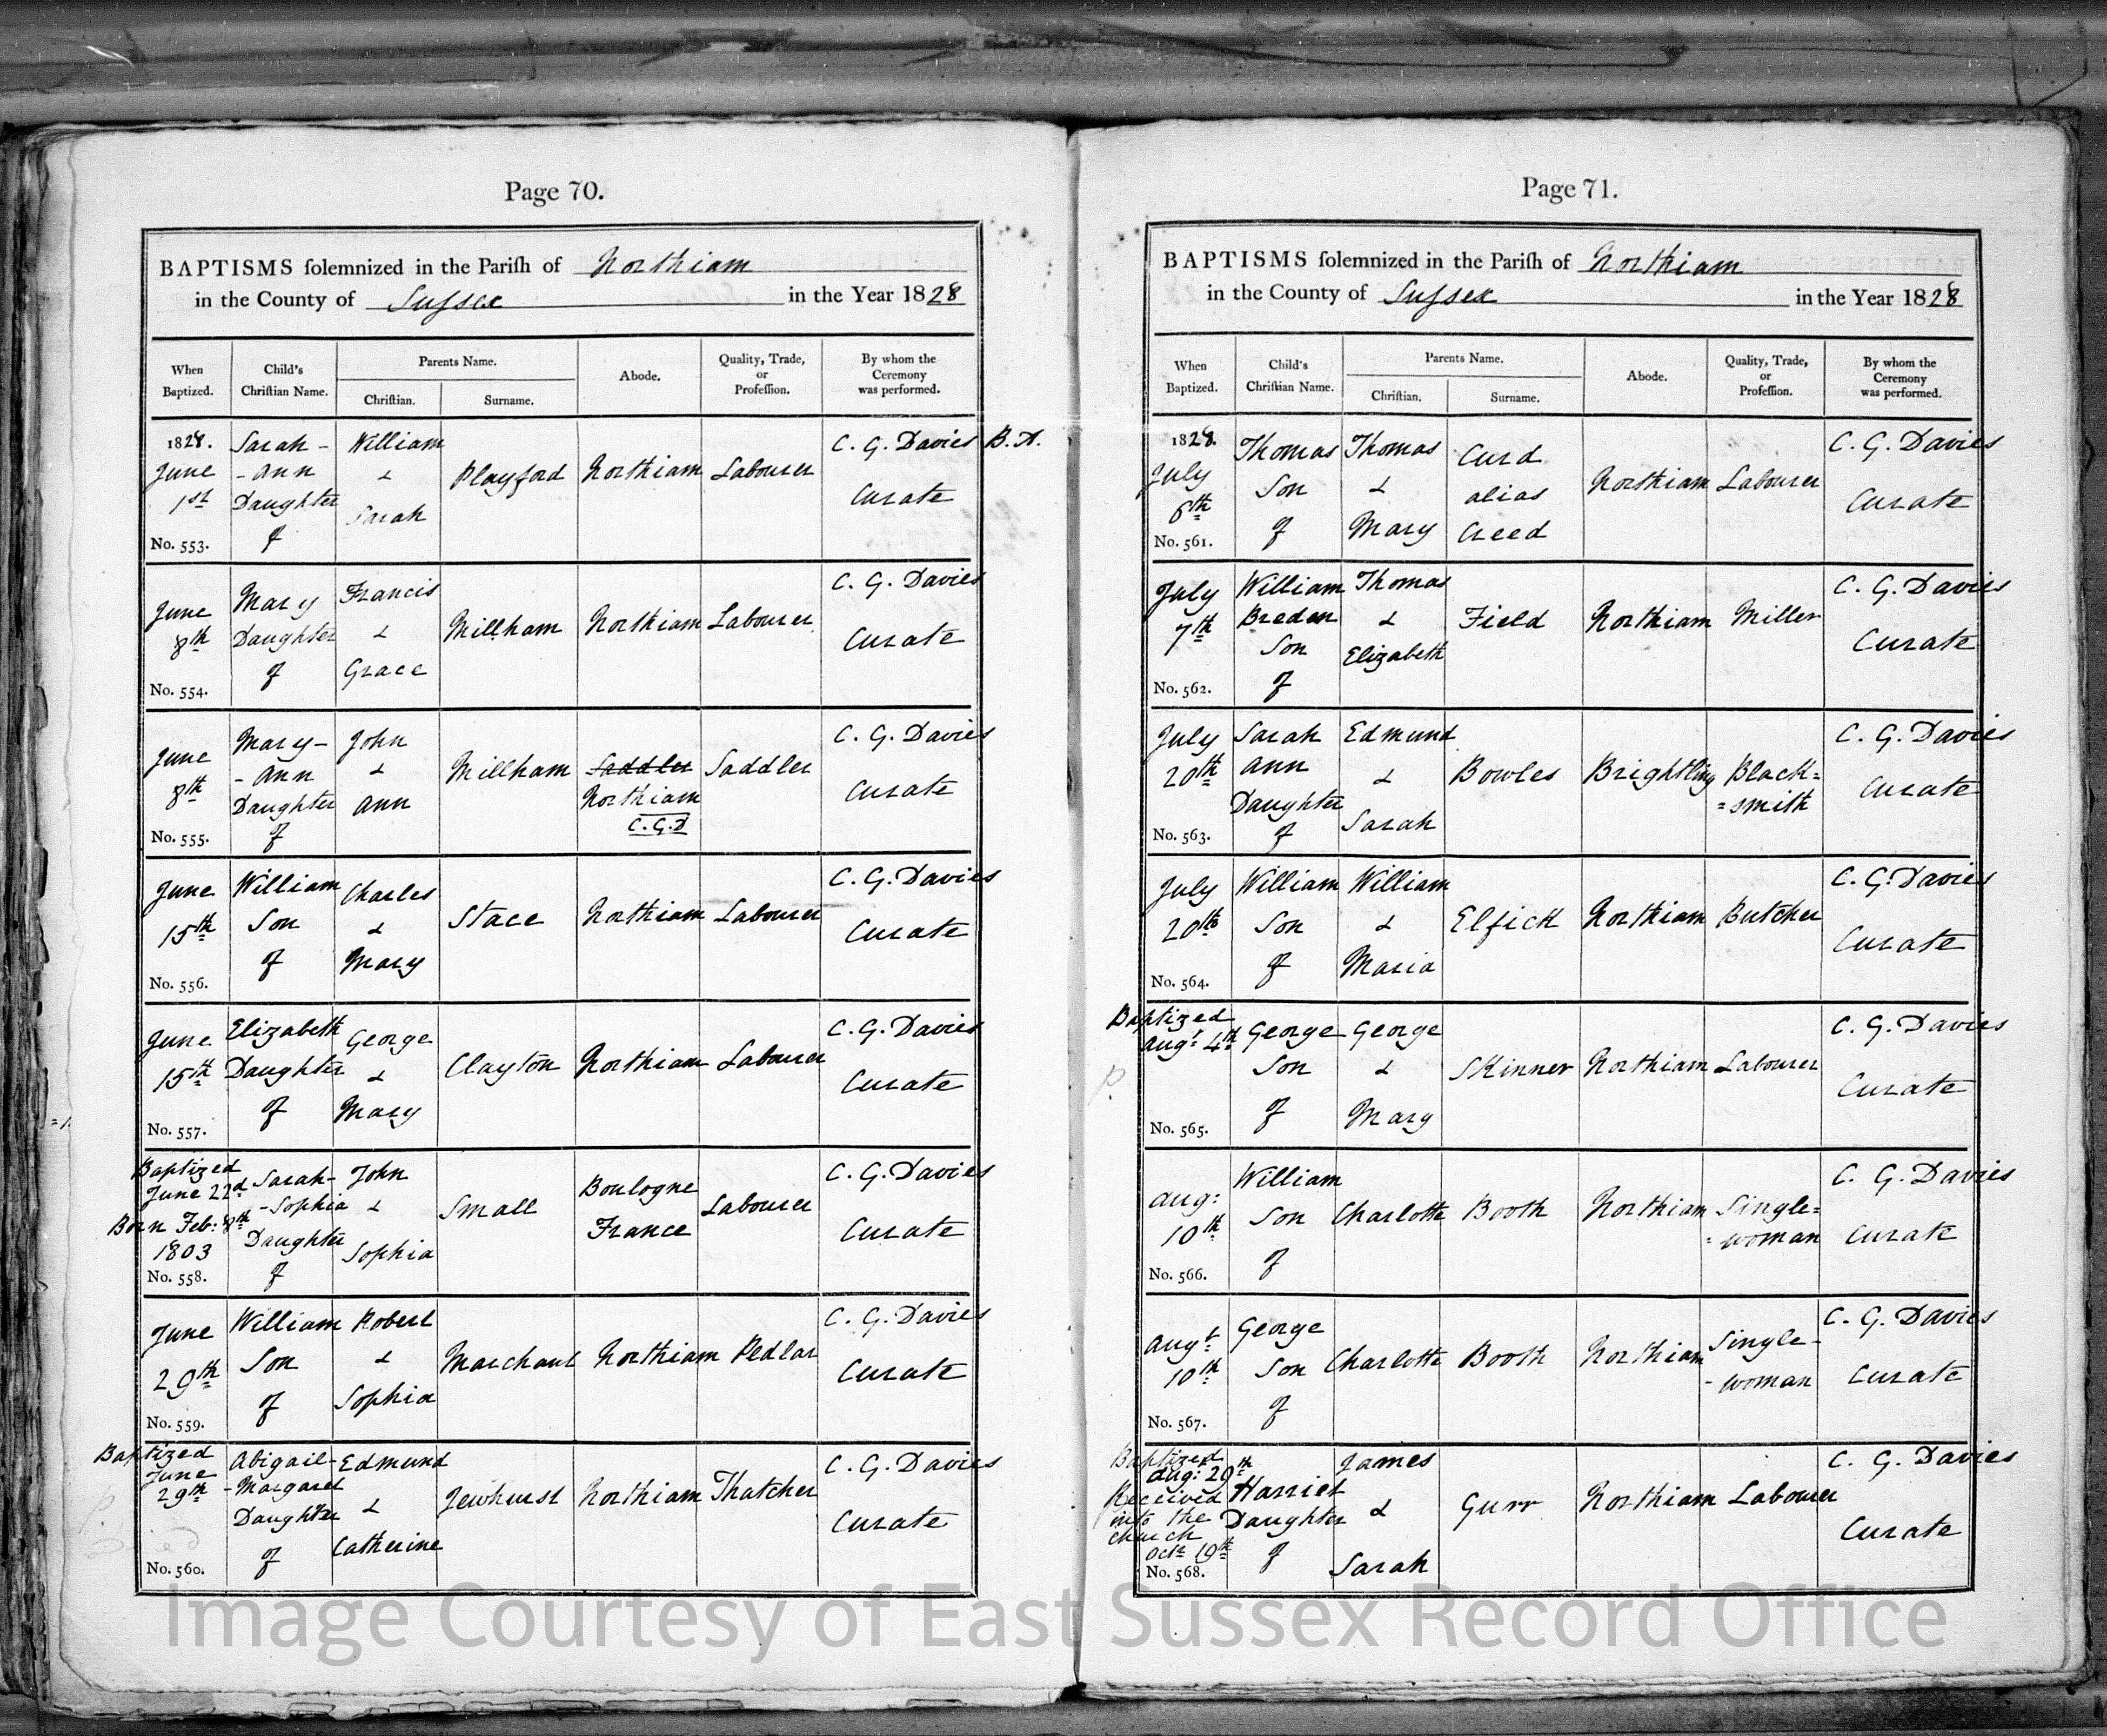 Page 70.
BAPTISMS solemnized in the Parish of Northiam
in the County of Sussex in the Year 1828
When Baptized.
Child's Christian Name.
Parents Name.
Christian.
Surname.
Abode.
Quality, Trade, or Profession.
By whom the Ceremony was performed.
1828. June 1st No. 553.
Sarah - - Ann Daughter of
William & Sarah
Playford
Northiam
Labourer
C. G. Davies B.A. Curate
June 8th No. 554.
Mary Daughter of
Francis & Grace
Millham
Northiam
Labourer
C. G. Davies Curate
June 8th No. 555.
Mary- - Ann Daughter of
John & Ann
Millham
Saddler Northiam C.G.D
Saddler
C. G. Davies Curate
June 15th No. 556.
William Son of
Charles & Mary
Stace
Northiam
Labourer
C. G. Davies Curate
June 15th No. 557.
Elizabeth Daughter of
George & Mary
Clayton
Northiam
Labourer
C. G. Davies Curate
Baptized June 22d Born Feb: 8th 1803 No. 558.
Sarah- -Sophia Daughter of
John & Sophia
Small
Boulogne France
Labourer
C. G. Davies Curate
June 29th No. 559.
William Son of
Robert & Sophia
Marchant
Northiam
Pedlar
C. G. Davies Curate
Baptized June 29th No. 560.
Abigail- -Margaret Daughter of
Edmund & Catherine
Jewhurst
Northiam
Thatcher
C. G. Davies Curate
Page 71.
BAPTISMS solemnized in the Parish of Northiam
in the County of Sussex in the Year 1828
When Baptized.
Child's Christian Name.
Parents Name.
Christian.
Surname.
Abode.
Quality, Trade, or Profession.
By whom the Ceremony was performed.
1828. July 6th No. 561.
Thomas Son of
Thomas & Mary
Curd alias Creed
Northiam
Labourer
C. G. Davies Curate
July 7th No. 562.
William Breden Son of
Thomas & Elizabeth
Field
Northiam
Miller
C. G. Davies Curate
July 20th No. 563.
Sarah Ann Daughter of
Edmund & Sarah
Bowles
Brightling
Black= =smith
C. G. Davies Curate
July 20th No. 564.
William Son of
William & Maria
Elfick
Northiam
Butcher
C. G. Davies Curate
Baptized Augt 4th No. 565.
George Son of
George & Mary
Skinner
Northiam
Labourer
C. G. Davies Curate
Aug: 10th No. 566.
William Son of
Charlotte
Booth
Northiam
Single= =woman
C. G. Davies Curate
Augt 10th No. 567.
George Son of
Charlotte
Booth
Northiam
Single- -woman
C. G. Davies Curate
Baptized Aug: 29th Received into the Church Octr 19th No. 568.
Harriet Daughter of
James & Sarah
Gurr
Northiam
Labourer
C. G. Davies Curate
Image Courtesy of East Sussex Record Office